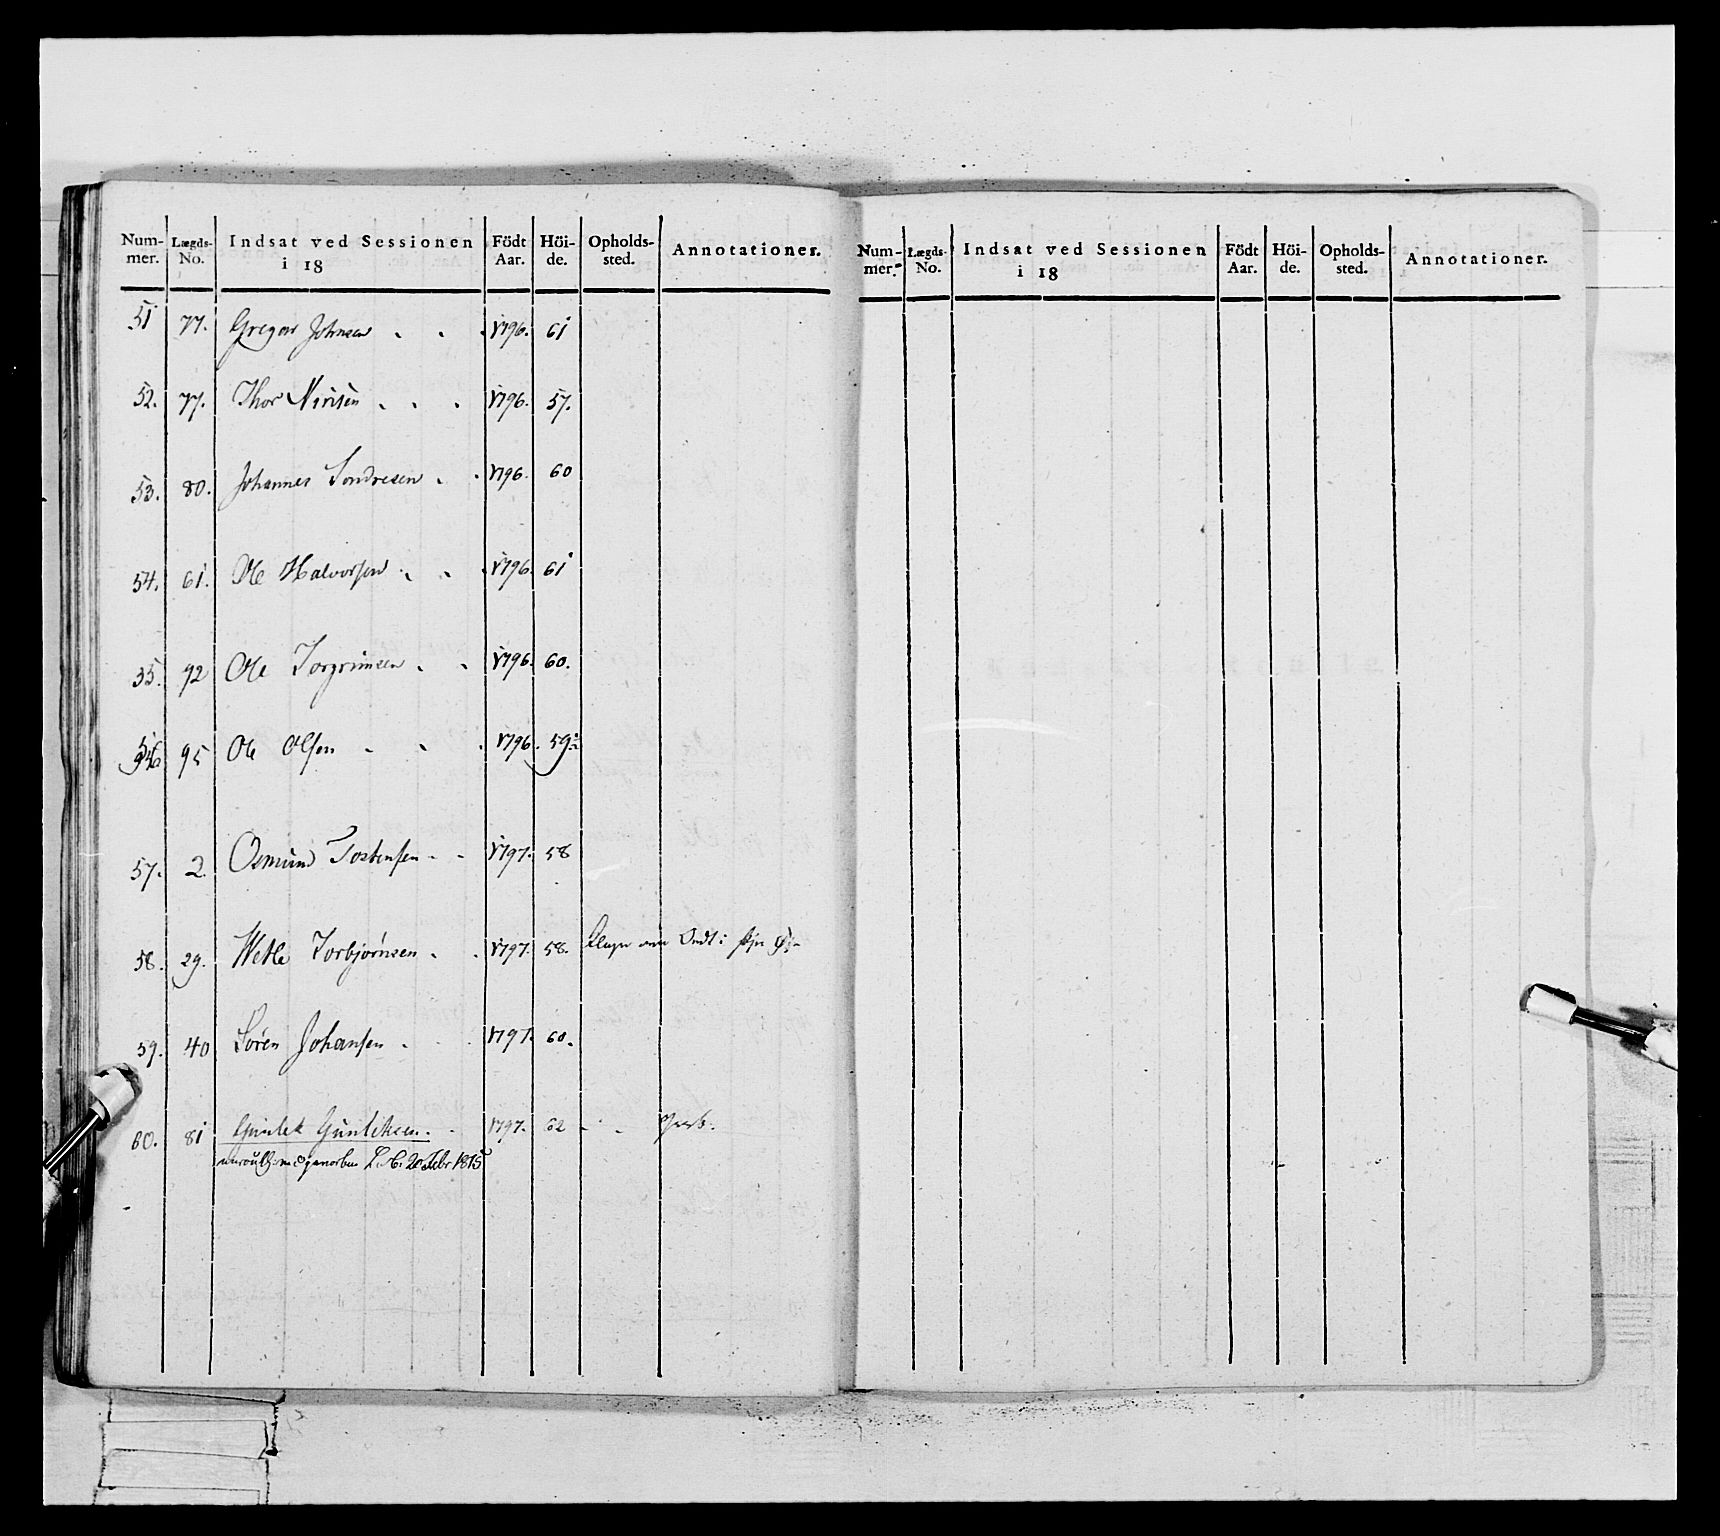 Num-mer. Lægds-No. Indsat ved Sessionen i 18 Födt Aar. Höi-de. Opholds-sted. Annotationer.
51 77. Gregar Johnsen 1796. 61
52. 77. Thor 1796. 57.
53. 80. Johannes Sondresen 1796. 60
54. 61. Ole Halvorsen 1796. 61
55. 92 Ole Torgrimsen 1796. 60.
56 95 Ole Olsen 1796. 59½
57. 2 Osmund Tostensen 1797. 58
58. 29. Wetle Torbjørnsen 1797. 58.
59. 40 Søren Johansen 1797. 60.
60. 81 Gunlek Gunleksen. 1797. 62
20 Febr 1815
Num-mer. Lægds-No. Indsat ved Sessionen i 18 Födt Aar. Höi-de. Opholds-sted. Annotationer.